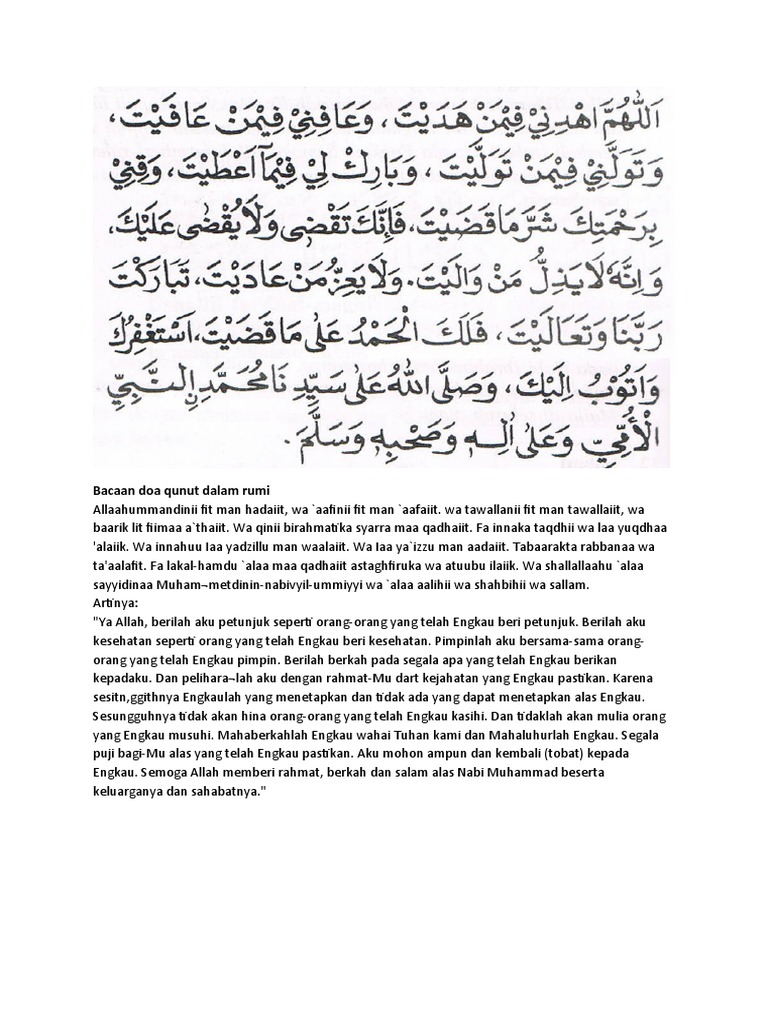 اَللّٰهُمَّ اهْدِنِيْ فِيْمَنْ هَدَيْتَ، وَعَافِنِيْ فِيْمَنْ عَافَيْتَ،
وَتَوَلَّنِيْ فِيْمَنْ تَوَلَّيْتَ، وَبَارِكْ لِيْ فِيْمَآ اَعْطَيْتَ، وَقِنِيْ
بِرَحْمَتِكَ شَرَّمَا قَضَيْتَ، فَاِنَّكَ تَقْضِى وَلَا يُقْضٰى عَلَيْكَ،
وَاِنَّهُ لَا يَذِلُّ مَنْ وَالَيْتَ. وَلَا يَعِزُّ مَنْ عَادَيْتَ، تَبَارَكْتَ
رَبَّنَا وَتَعَالَيْتَ، فَلَكَ الْحَمْدُ عَلٰى مَا قَضَيْتَ، اَسْتَغْفِرُكَ
وَاَتُوْبُ اِلَيْكَ، وَصَلَّى اللهُ عَلٰى سَيِّدِنَا مُحَمَّدِنِ النَّبِيِّ
الْاُمِّيِّ وَعَلٰى اٰلِهِ وَصَحْبِهِ وَسَلَّمَ.
Bacaan doa qunut dalam rumi
Allaahummandinii fit man hadaiit, wa `aafinii fit man `aafaiit. wa tawallanii fit man tawallaiit, wa
baarik lit fiimaa a`thaiit. Wa qinii birahmatika syarra maa qadhaiit. Fa innaka taqdhii wa laa yuqdhaa
'alaiik. Wa innahuu Iaa yadzillu man waalaiit. Wa Iaa ya`izzu man aadaiit. Tabaarakta rabbanaa wa
ta'aalafit. Fa lakal-hamdu `alaa maa qadhaiit astaghfiruka wa atuubu ilaiik. Wa shallallaahu `alaa
sayyidinaa Muham¬metdinin-nabivyil-ummiyyi wa `alaa aalihii wa shahbihii wa sallam.
Artinya:
"Ya Allah, berilah aku petunjuk seperti orang-orang yang telah Engkau beri petunjuk. Berilah aku
kesehatan seperti orang yang telah Engkau beri kesehatan. Pimpinlah aku bersama-sama orang-
orang yang telah Engkau pimpin. Berilah berkah pada segala apa yang telah Engkau berikan
kepadaku. Dan pelihara¬lah aku dengan rahmat-Mu dart kejahatan yang Engkau pastikan. Karena
sesitn,ggithnya Engkaulah yang menetapkan dan tidak ada yang dapat menetapkan alas Engkau.
Sesungguhnya tidak akan hina orang-orang yang telah Engkau kasihi. Dan tidaklah akan mulia orang
yang Engkau musuhi. Mahaberkahlah Engkau wahai Tuhan kami dan Mahaluhurlah Engkau. Segala
puji bagi-Mu alas yang telah Engkau pastikan. Aku mohon ampun dan kembali (tobat) kepada
Engkau. Semoga Allah memberi rahmat, berkah dan salam alas Nabi Muhammad beserta
keluarganya dan sahabatnya."